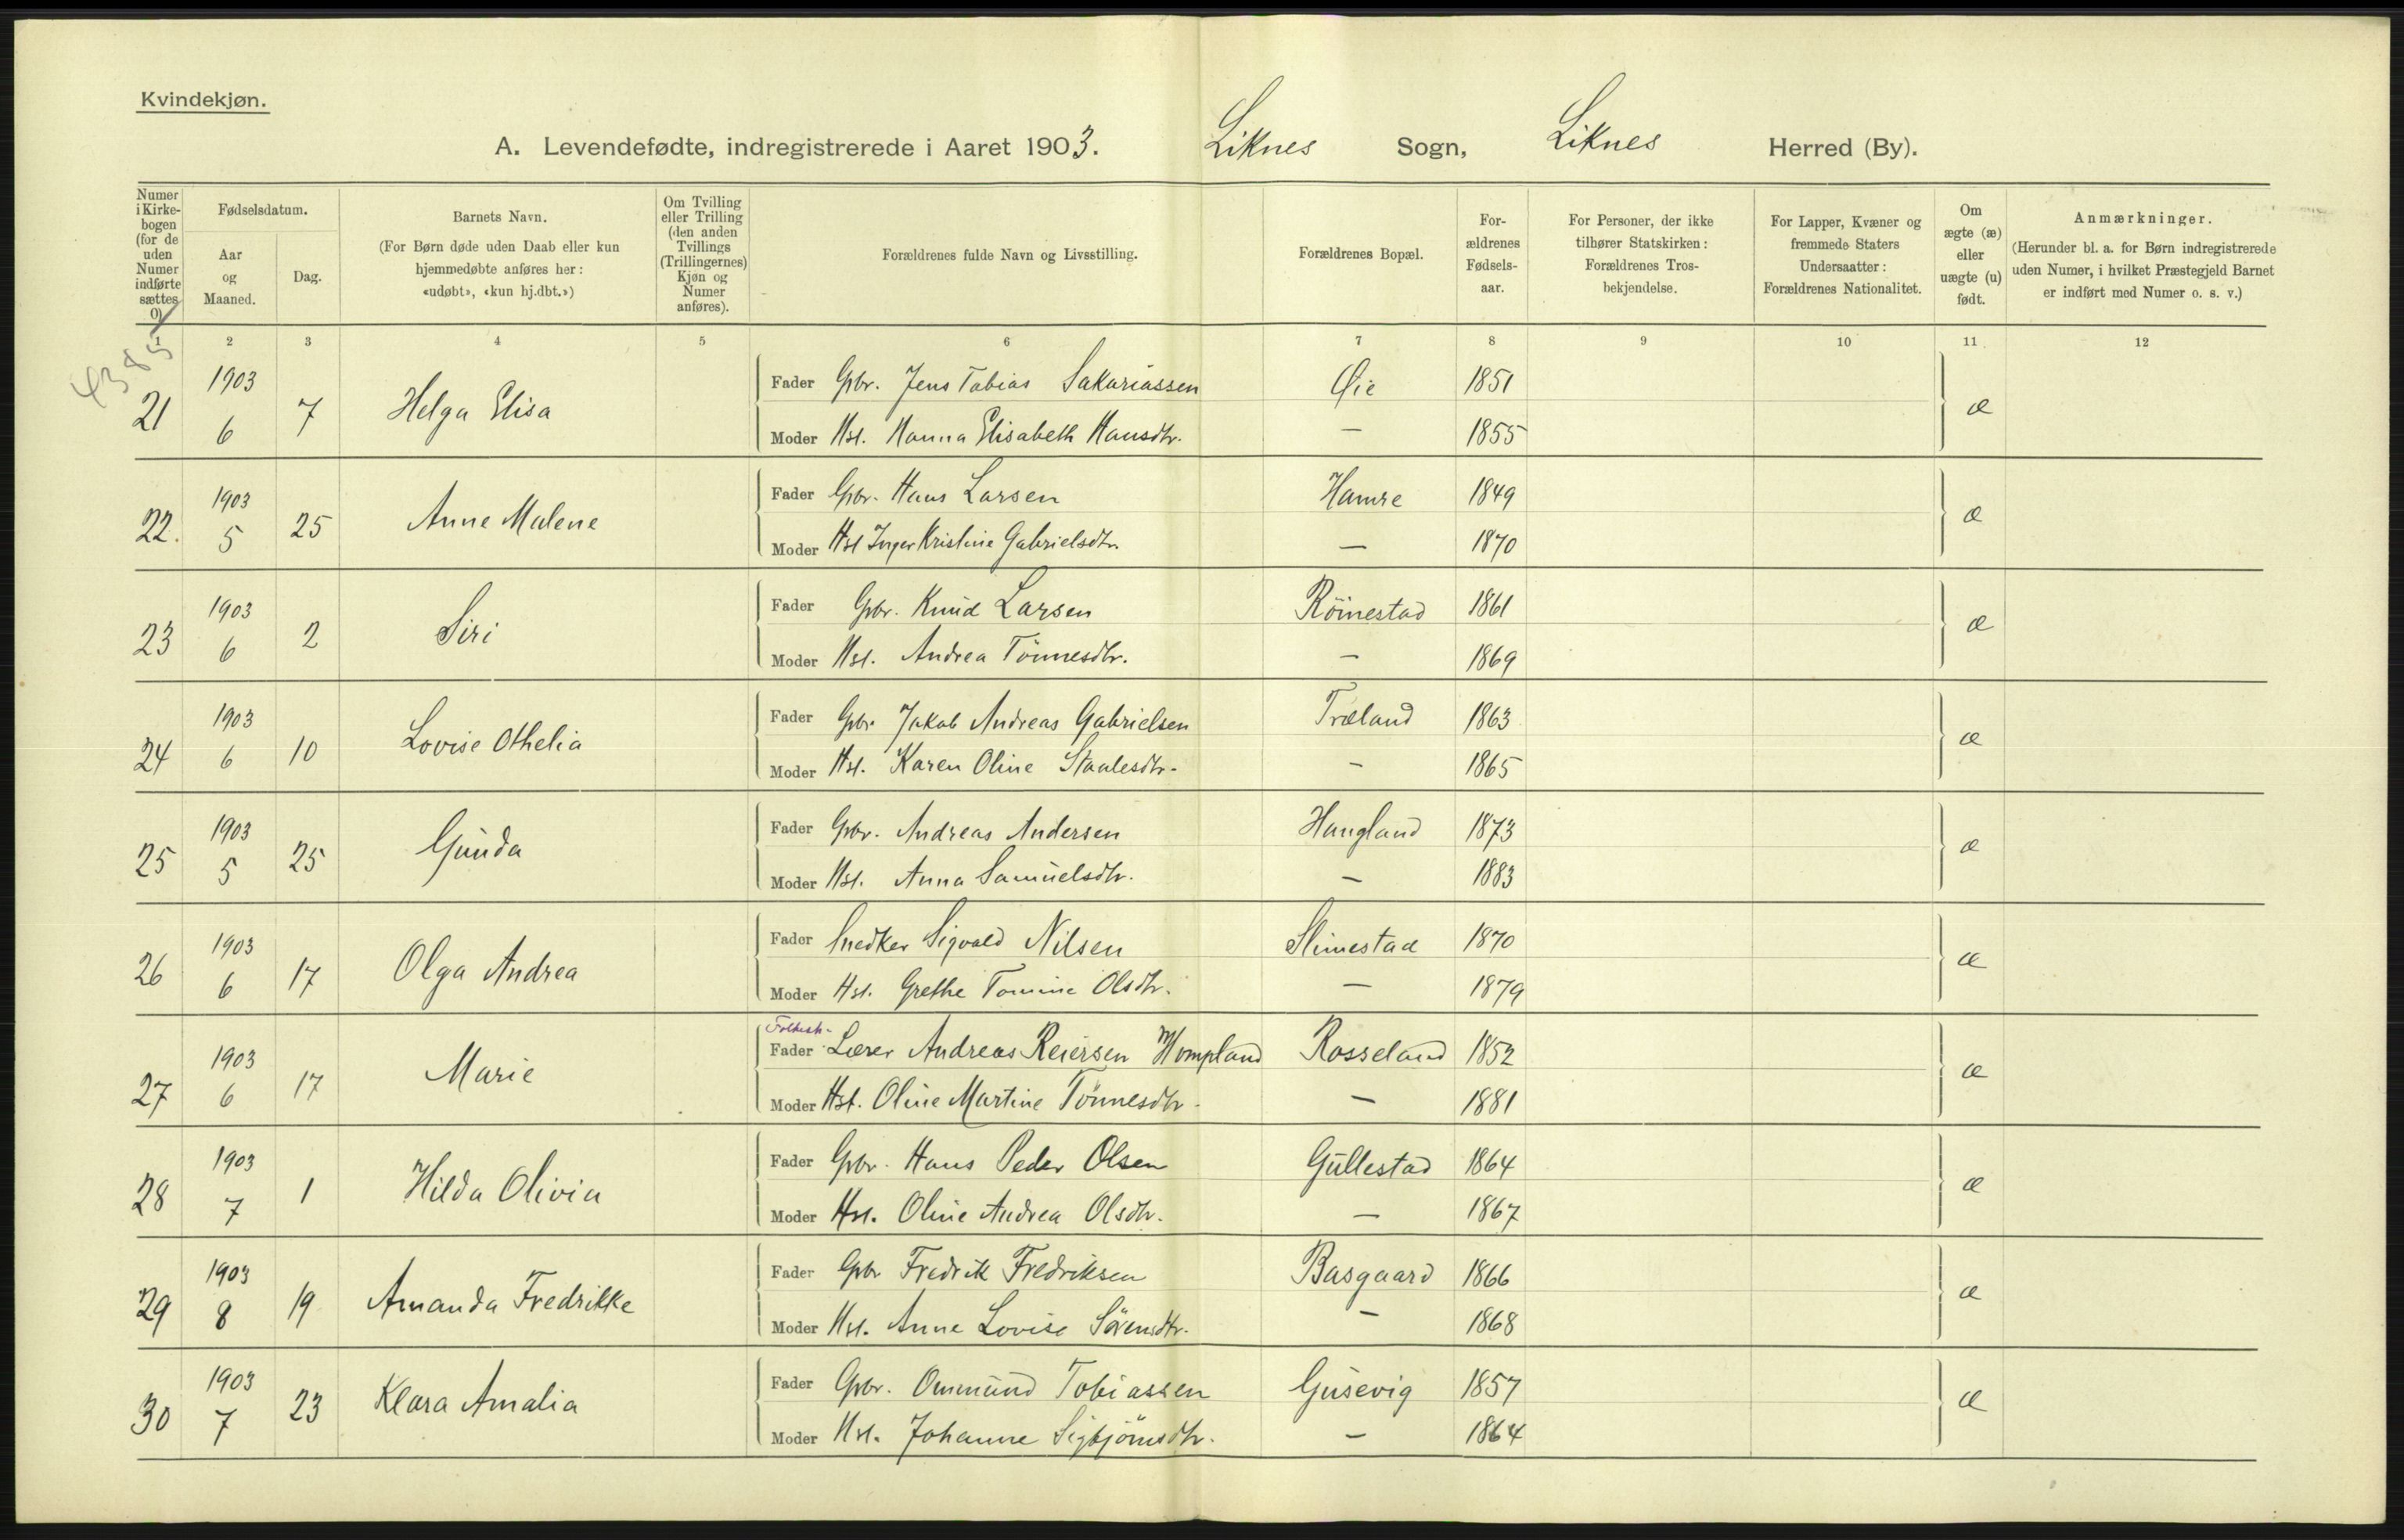 Kvindekjøn.
A. Levendefødte, indregistrerede i Aaret 1903. Liknes Sogn, Liknes Herred (By).
Numer i Kirkebogen (for de uden Numer indførte sættes 0)
Fødselsdatum.
Aar og Maaned.
Dag.
Barnets Navn.
(For Børn døde uden Daab eller kun hjemmedøbte anføres her: «udøbt», «kun hj.dbt.»)
Om Tvilling eller Trilling (den anden Tvillings (Trillingernes) Kjøn og Numer anføres).
Forældrenes fulde Navn og Livsstilling.
Forældrenes Bopæl.
Forældrenes Fødselsaar.
For Personer, der ikke tilhører Statskirken: Forældrenes Trosbekjendelse.
For Lapper, Kvæner og fremmede Staters Undersaatter: Forældrenes Nationalitet.
Om ægte (æ) eller uægte (u) født.
Anmærkninger.
(Herunder bl. a. for Børn indregistrerede uden Numer, i hvilket Præstegjeld Barnet er indført med Numer o. s. v.)
1 2 3 4 5 6 7 8 9 10 11 12
4385
21 1903 6 7 Helga Elisa Fader Gbr. Jens Tobias Sakariassen Øie 1851 æ
Moder Hst. Hanna Elisabeth Hansdtr. — 1855
22. 1903 5 25 Anne Malene Fader Gbr. Hans Larsen Hamre 1849 æ
Moder Hst Inger Kristine Gabrielsdtr. — 1870
23 1903 6 2 Siri Fader Gbr. Knud Larsen Röinestad 1861 æ
Moder Hst. Andrea Tönnesdtr. — 1869
24 1903 6 10 Lovise Othelia Fader Gbr. Jakob Andreas Gabrielsen Træland 1863 æ
Moder Hst. Karen Oline Staalesdtr. — 1865
25 1903 5 25 Gunda Fader Gbr. Andreas Andersen Haugland 1873 æ
Moder Hst. Anna Samuelsdtr. — 1883
26 1903 6 17 Olga Andrea Fader Snedker Sigvald Nilsen Slimestad 1870 æ
Moder Hst. Grethe Tomine Olsdtr. — 1879
27 1903 6 17 Marie Folkesk. Fader Lærer Andreas Reiersen Hompland Rosseland 1852 æ
Moder Hst. Oline Martine Tönnesdtr. — 1881
28 1903 7 1 Hilda Olivia Fader Gbr. Hans Peder Olsen Gullestad 1864 æ
Moder Hst. Oline Andrea Olsdtr. — 1867
29 1903 8 19 Amanda Fredrikke Fader Gbr Fredrik Fredriksen Basgaard 1866 æ
Moder Hst. Anne Lovise Sörensdtr. — 1868
30 1903 7 23 Klara Amalia Fader Gbr. Ommund Tobiassen Gusevig 1857 æ
Moder Hst. Johanne Sigbjörnsdtr. — 1864